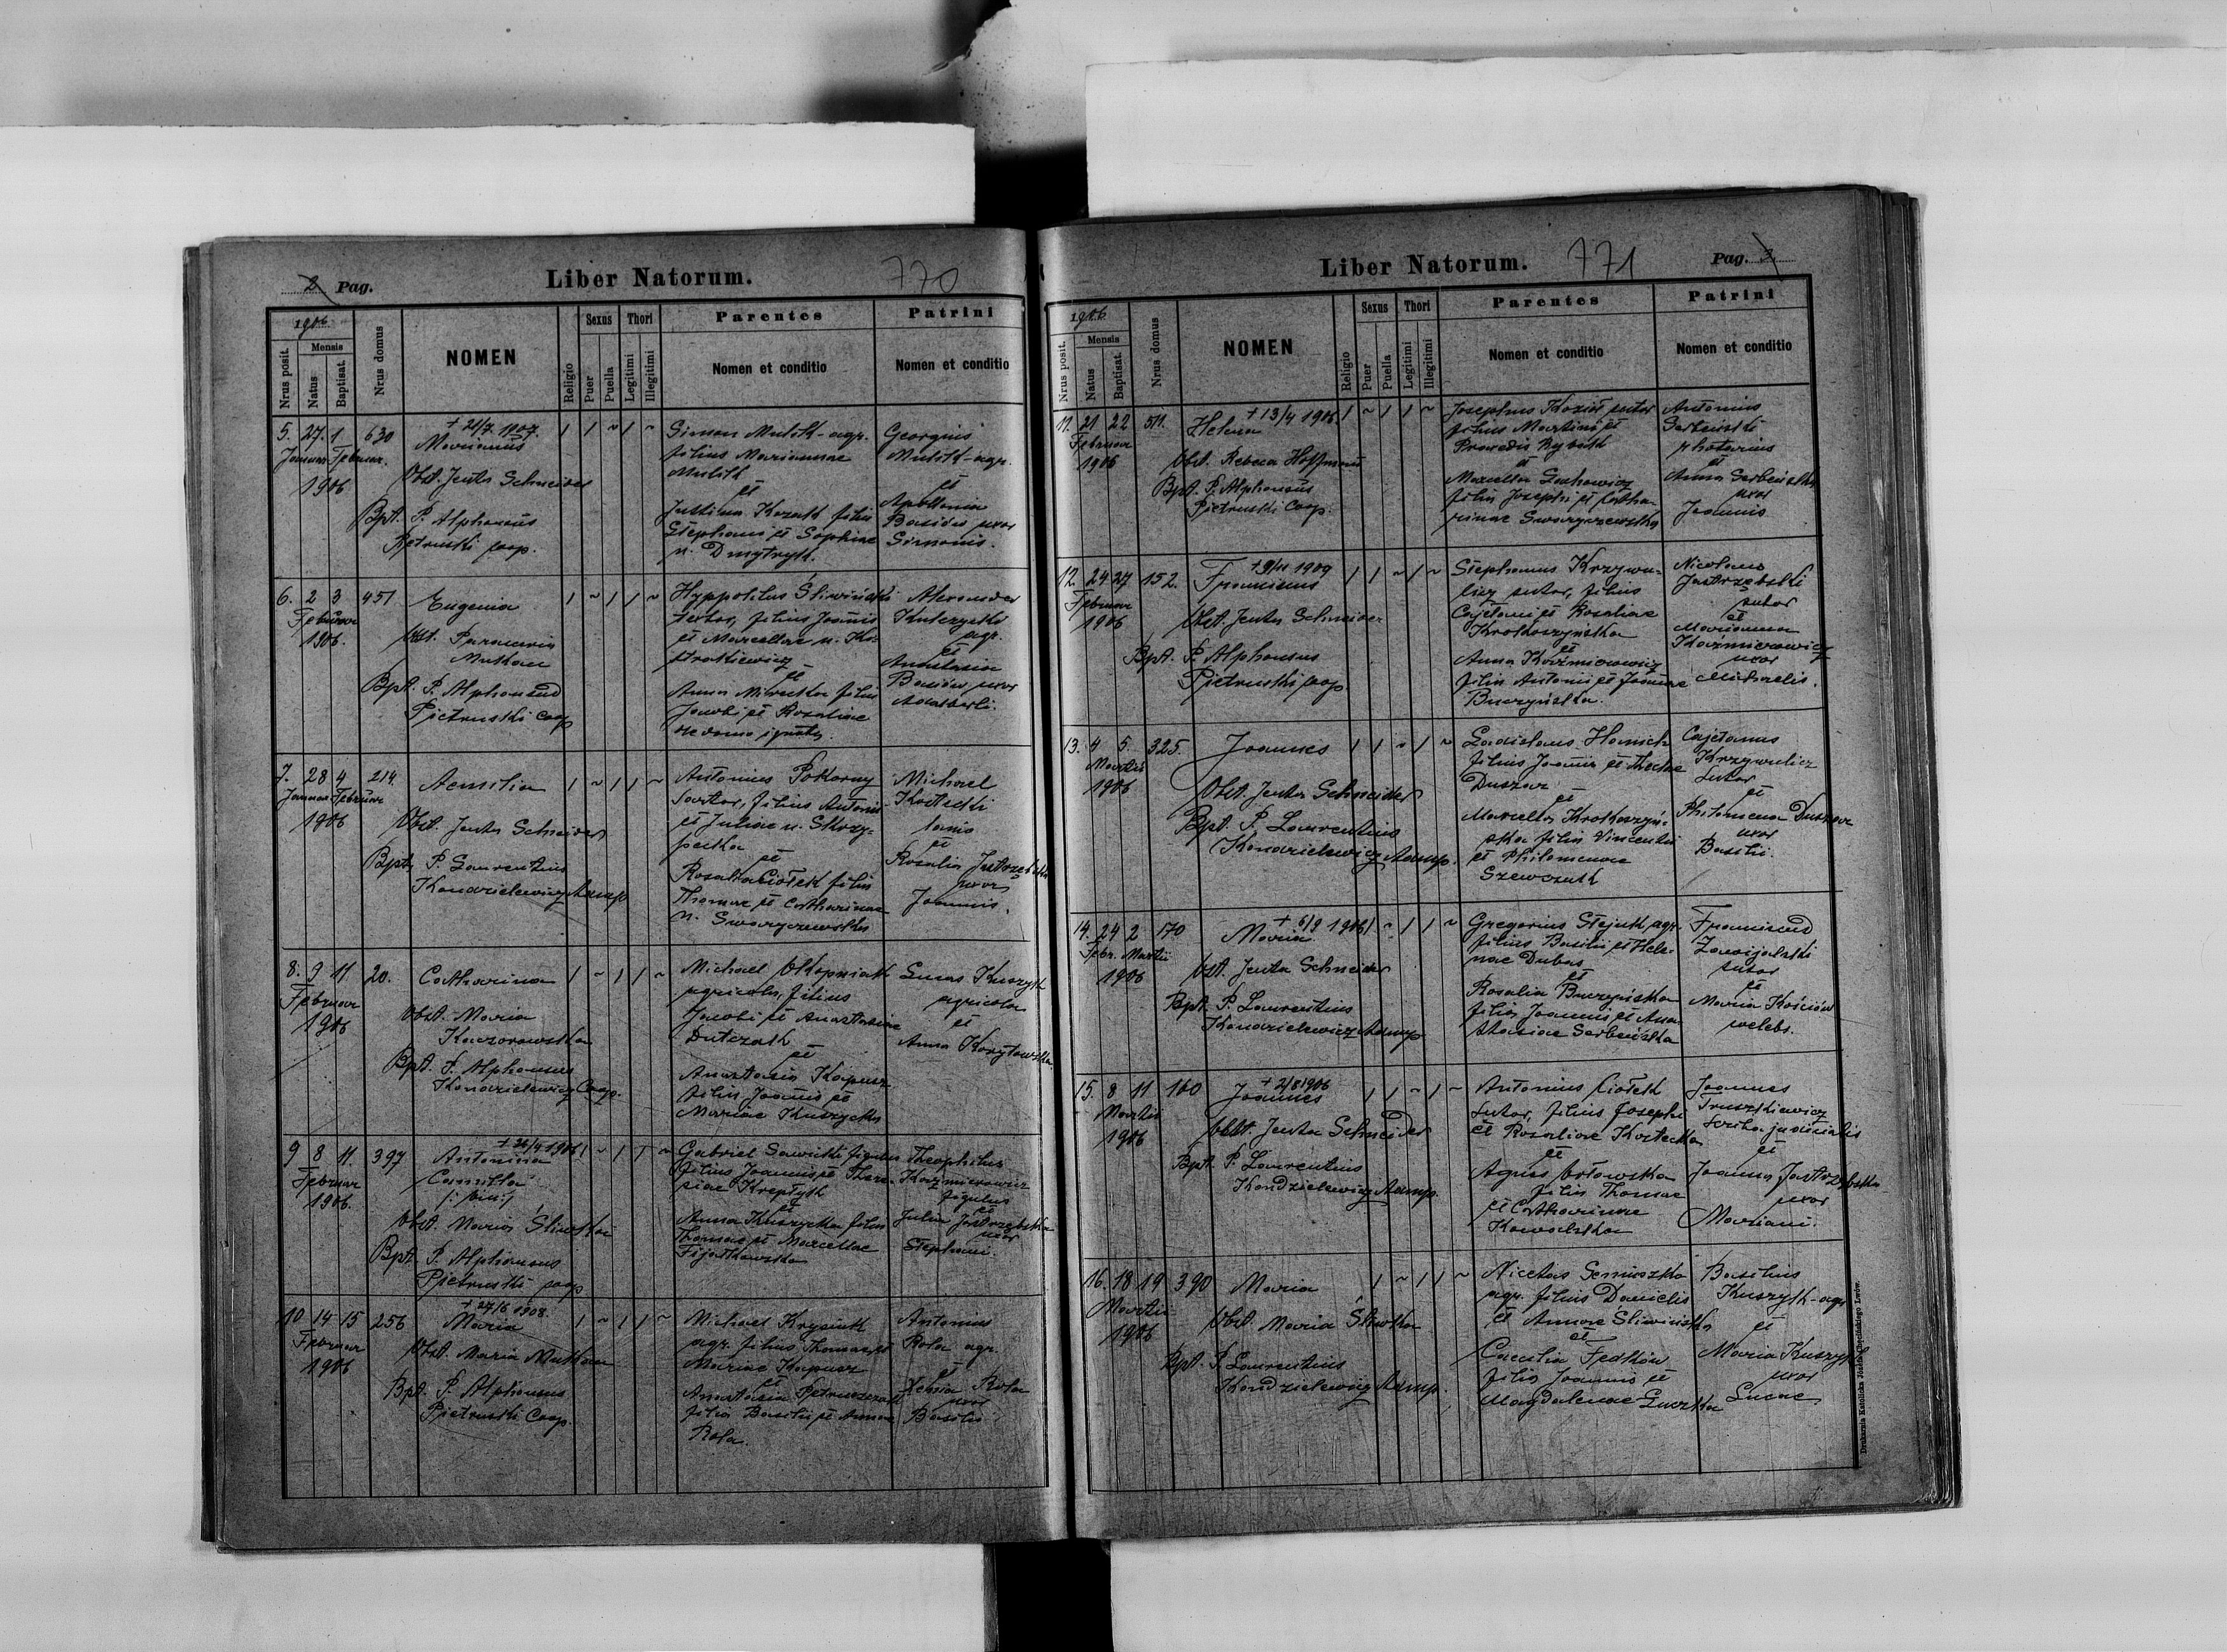 2 Pag.
Liber Natorum.
770
1906
Nrus posit.
Mensis
Natus
Baptisat.
Nrus domus
NOMEN
Religio
Sexus
Puer
Puella
Thori
Legitimi
Illegitimi
Parentes
Nomen et conditio
Patrini
Nomen et conditio
5. 27. 1 630
Januar. Februar.
1906
+ 21/7. 1907.
Marianus
Obst. Jenta Schneider
Bpt. P. Alphonsus
Pietruski coop.
Simon Mulik - agr.
filius Mariannae
Mulik
et
Justina Kozak filia
Stephani et Sophiae
n. Dmytryk.
Georgius
Mulik - agr.
et
Apollonia
Basiów uxor
Simonis.
6. 2 3 451
Februar
1906.
Eugenia
Obst. Paraneria
Bpt. P. Alphonsus
Pietruski coop
Hyppolitus Śliwiński
filius Joannis
et Marcellae n.
et
Anna filia
Jacobi et Rosaliae
Alexander
Kulczycki
agr.
et
Anastasia
Basiów uxor
Adalberti.
7. 28 4 214
Januar Februar
1906
Aemilia
Obst. Jenta Schneider
Bpt. P. Laurentius
Kondzielewicz Admp
Antonius Pokorny
Sartor, filius Antonii
et Juliae n. Skrzy-
pecka
et
Rosalia Ciołek filia
Thomae et Catharinae
n. Swaryczewska
Michael
Kostecki
lanio
et
Rosalia Jastrzębska
uxor
Joannis.
8. 9 11 20.
Februar
1906
Catharina
Obst. Maria
Kaczorowska
Bpt. P. Alphonsus
Kondzielewicz Coop.
Michael Okopniak
agricola, filius
Jacobi et Anastasiae
Dutczak
et
Anastasia Kapusz
filia Joannis et
Mariae Kuszycka
Lucas Kuszyk
agricola
et
Anna Kozytowska
9 8 11. 397
Februar
1906.
+ 26/4 1906
Antonina
Camilla
/: bin:/
Obst. Maria Śliwska
Bpt. P. Alphonsus
Pietruski coop
Gabriel Sawicki figulus
filius Joannis et There-
siae Krepłyk
et
Anna Kuszycka filia
Thomae et Marcellae
Fijałkowska
Theophilus
Kazmierowicz
figulus
et
Julia Jastrzębska
uxor
Stephani.
10 14 15 256
Februar
1906
+ 27/6 1908.
Maria
Obst. Maria
Bpt. P. Alphonsus
Pietruski Coop.
Michael Krysiuk
agr. filius Thomae et
Mariae Kapusz
et
Anastasia Petruszczak
filia Basilii et Annae
Rola.
Antonius
Rola agr.
et
Xenia Rola
uxor
Basilii
Liber Natorum.
771
Pag. 3
1906
Nrus posit.
Mensis
Natus
Baptisat.
Nrus domus
NOMEN
Religio
Sexus
Puer
Puella
Thori
Legitimi
Illegitimi
Parentes
Nomen et conditio
Patrini
Nomen et conditio
11. 21 22 511.
Februar
1906
+ 13/4 1906
Helena
Obst. Rebeca Hoffmann
Bpt. P. Alphonsus
Pietruski Coop.
Josephus Kozioł sutor
filius Martini et
Rybak
et
Marcella
filia Josephi et Catha-
rinae Swaryczewska
Antonius
Serbeński
et
Anna Serbeńska
uxor
Joannis
12. 24 27 152.
Februar
1906
+ 9/11 1909
Franciscus
Obst. Jenta Schneider
Bpt. P. Alphonsus
Pietruski coop.
Stephanus Krzywu-
licz sutor, filius
Cajetani et Rosaliae
Krokoszyńska
et
Anna Kazmierowicz
filia Antonii et Joannae
Buczyńska.
Nicolaus
Jastrzębski
sutor
et
Marianna
Kazmierowicz
uxor
Michaelis.
13. 4 5. 325.
Martii
1906
Joannes
Obst. Jenta Schneider
Bpt. P. Laurentius
Kondzielewicz Admp.
Ladislaus
filius Joannis et Theclae
Duszar
et
Marcella Krokoszyń-
ska filia Vincentii
et Philomenae
Szewczuk
Cajetanus
Krzywulicz
Sutor
et
Philomena Duszar
uxor
Basilii.
14. 24 2 170
Febr. Martii
1906
+ 6/9 1906
Maria
Obst. Jenta Schneider
Bpt. P. Laurentius
Kondzielewicz Admp
Gregorius agr.
filius Basilii et Hele-
nae Dubas
et
Rosalia Buczyńska
filia Joannis et Ana-
stasiae Serbeńska
Franciscus
sutor
et
Maria Kościów
uxor
15. 8 11 160
Martii
1906
+ 2/8 1906
Joannes
Obst. Jenta Schneider
Bpt. P. Laurentius
Kondzielewicz Admp.
Antonius Ciołek
Sutor, filius Josephi
et Rosaliae Kostecka
et
Agnes Orłowska
filia Thomae
et Catharinae
Kowalska
Joannes
Truszkiewicz
Scriba judicialis
et
Joanna Jastrzębska
uxor
Mariani.
16. 18 19 390
Martii
1906
Maria
Obst. Maria Śliwska
Bpt. P. Laurentius
Kondzielewicz Admp.
Nicetas Semiszka
agr. filius Danielis
et Annae Śliwińska
et
Caecilia Fedków
filia Joannis et
Magdalenae Łuczka
Basilius
Kuszyk - agr
et
Maria Kuszyk
uxor
Lucae
Drukarnia Katolicka Józefa Chęcińskiego Lwów.